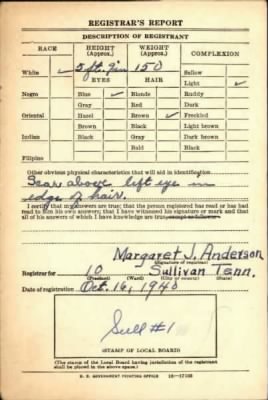 REGISTRAR'S REPORT
DESCRIPTION OF REGISTRANT
RACE
HEIGHT
(Approx.)
WEIGHT
(Approx.)
COMPLEXION
White ✓ 5 ft. 7 in 150 Sallow
EYES HAIR Light ✓
Negro Blue ✓ Blonde Ruddy
Gray Red Dark
Oriental Hazel Brown ✓ Freckled
Brown Black Light brown
Indian Black Gray Dark brown
Bald Black
Filipino
Other obvious physical characteristics that will aid in identification
Scar above left eye in
edge of hair.
I certify that my answers are true; that the person registered has read or has had
read to him his own answers; that I have witnessed his signature or mark and that
all of his answers of which I have knowledge are true, except as follows:
Margaret J. Anderson
(Signature of registrar)
Registrar for 10 Sullivan Tenn.
(Precinct) (Ward) (City or county) (State)
Date of registration Oct. 16, 1940
Sull #1
(STAMP OF LOCAL BOARD)
(The stamp of the Local Board having jurisdiction of the registrant
shall be placed in the above space.)
U. S. GOVERNMENT PRINTING OFFICE 16—17105